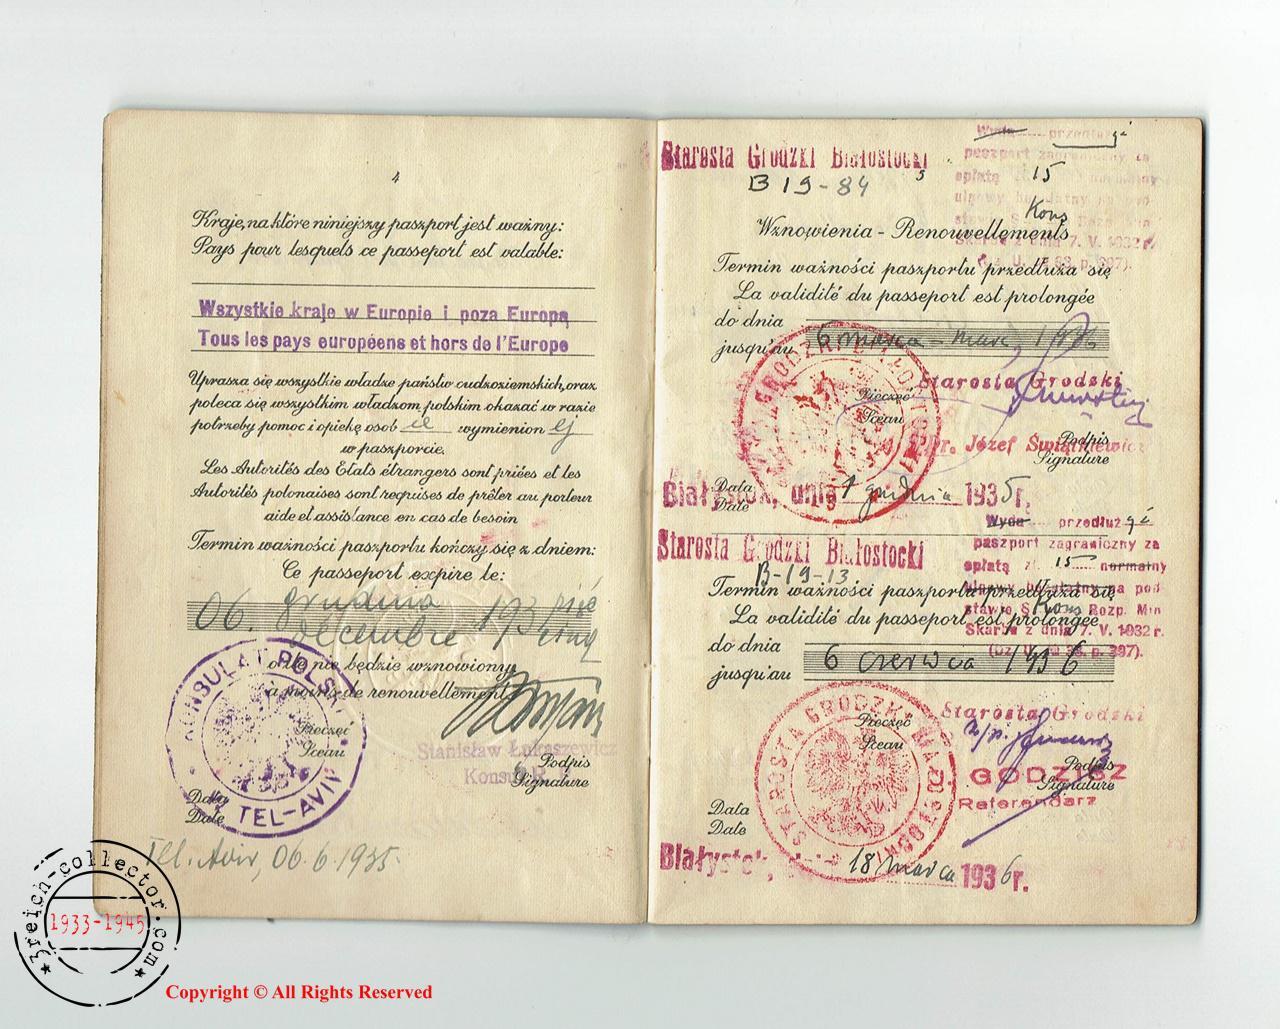 4
Kraje, na które niniejszy paszport jest ważny:
Pays pour lesquels ce passeport est valable:
Wszystkie kraje w Europie i poza Europą
Tous les pays européens et hors de l'Europe
Uprasza się wszystkie władze państw cudzoziemskich, oraz
poleca się wszystkim władzom polskim okazać w razie
potrzeby pomoc i opiekę osobie wymienionej
w paszporcie.
Les Autorités des Etats étrangers sont priées et les
Autorités polonaises sont requises de prêter au porteur
aide et assistance en cas de besoin
Termin ważności paszportu kończy się z dniem:
Ce passeport expire le:
06. grudnia 193
décembre
o ile nie będzie wznowiony,
à moins de renouvellement
KONSULAT POLSKI
TEL-AVIV
Pieczęć
Sceau
Stanisław Łukaszewicz
Konsul R. P.
Podpis
Signature
Data
Date
Tel-Aviv, 06.6.1935.
Starosta Grodzki Białostocki
B 19-84
5
Wyda przedłużgi
paszport zagraniczny za
opłatą 15 normalny
Kons
Skarbu z dnia 7. V. 1932 r.
(Dz. U. 38, p. 397).
Wznowienia - Renouvellements
Termin ważności paszportu przedłuża się
La validité du passeport est prolongée
do dnia
jusqu'au
6 marca - mars 1936
Starosta Grodzki
Pieczęć
Sceau
Dr. Józef Świątkiewicz
Podpis
Signature
Data
Date
Białystok, dnia 7 grudnia 1935 r.
Wyda przedłużgi
paszport zagraniczny za
opłatą zł. 15 normalny
ulgowy bezpłatny na pod-
stawie § Kons Rozp. Min
Skarbu z dnia 7. V. 1932 r.
(Dz. U. 38, p. 397).
Starosta Grodzki Białostocki
B-19-13
Termin ważności paszportu przedłuża się
La validité du passeport est prolongée
do dnia
jusqu'au
6 czerwca 1936
STAROSTA GRODZKI BIAŁOSTOCKI
Pieczęć
Sceau
Starosta Grodzki
GODZISZ
Referendarz
Podpis
Signature
Data
Date
Białystok, dnia 18 marca 1936 r.
3reich-collector.com
1933-1945
Copyright © All Rights Reserved